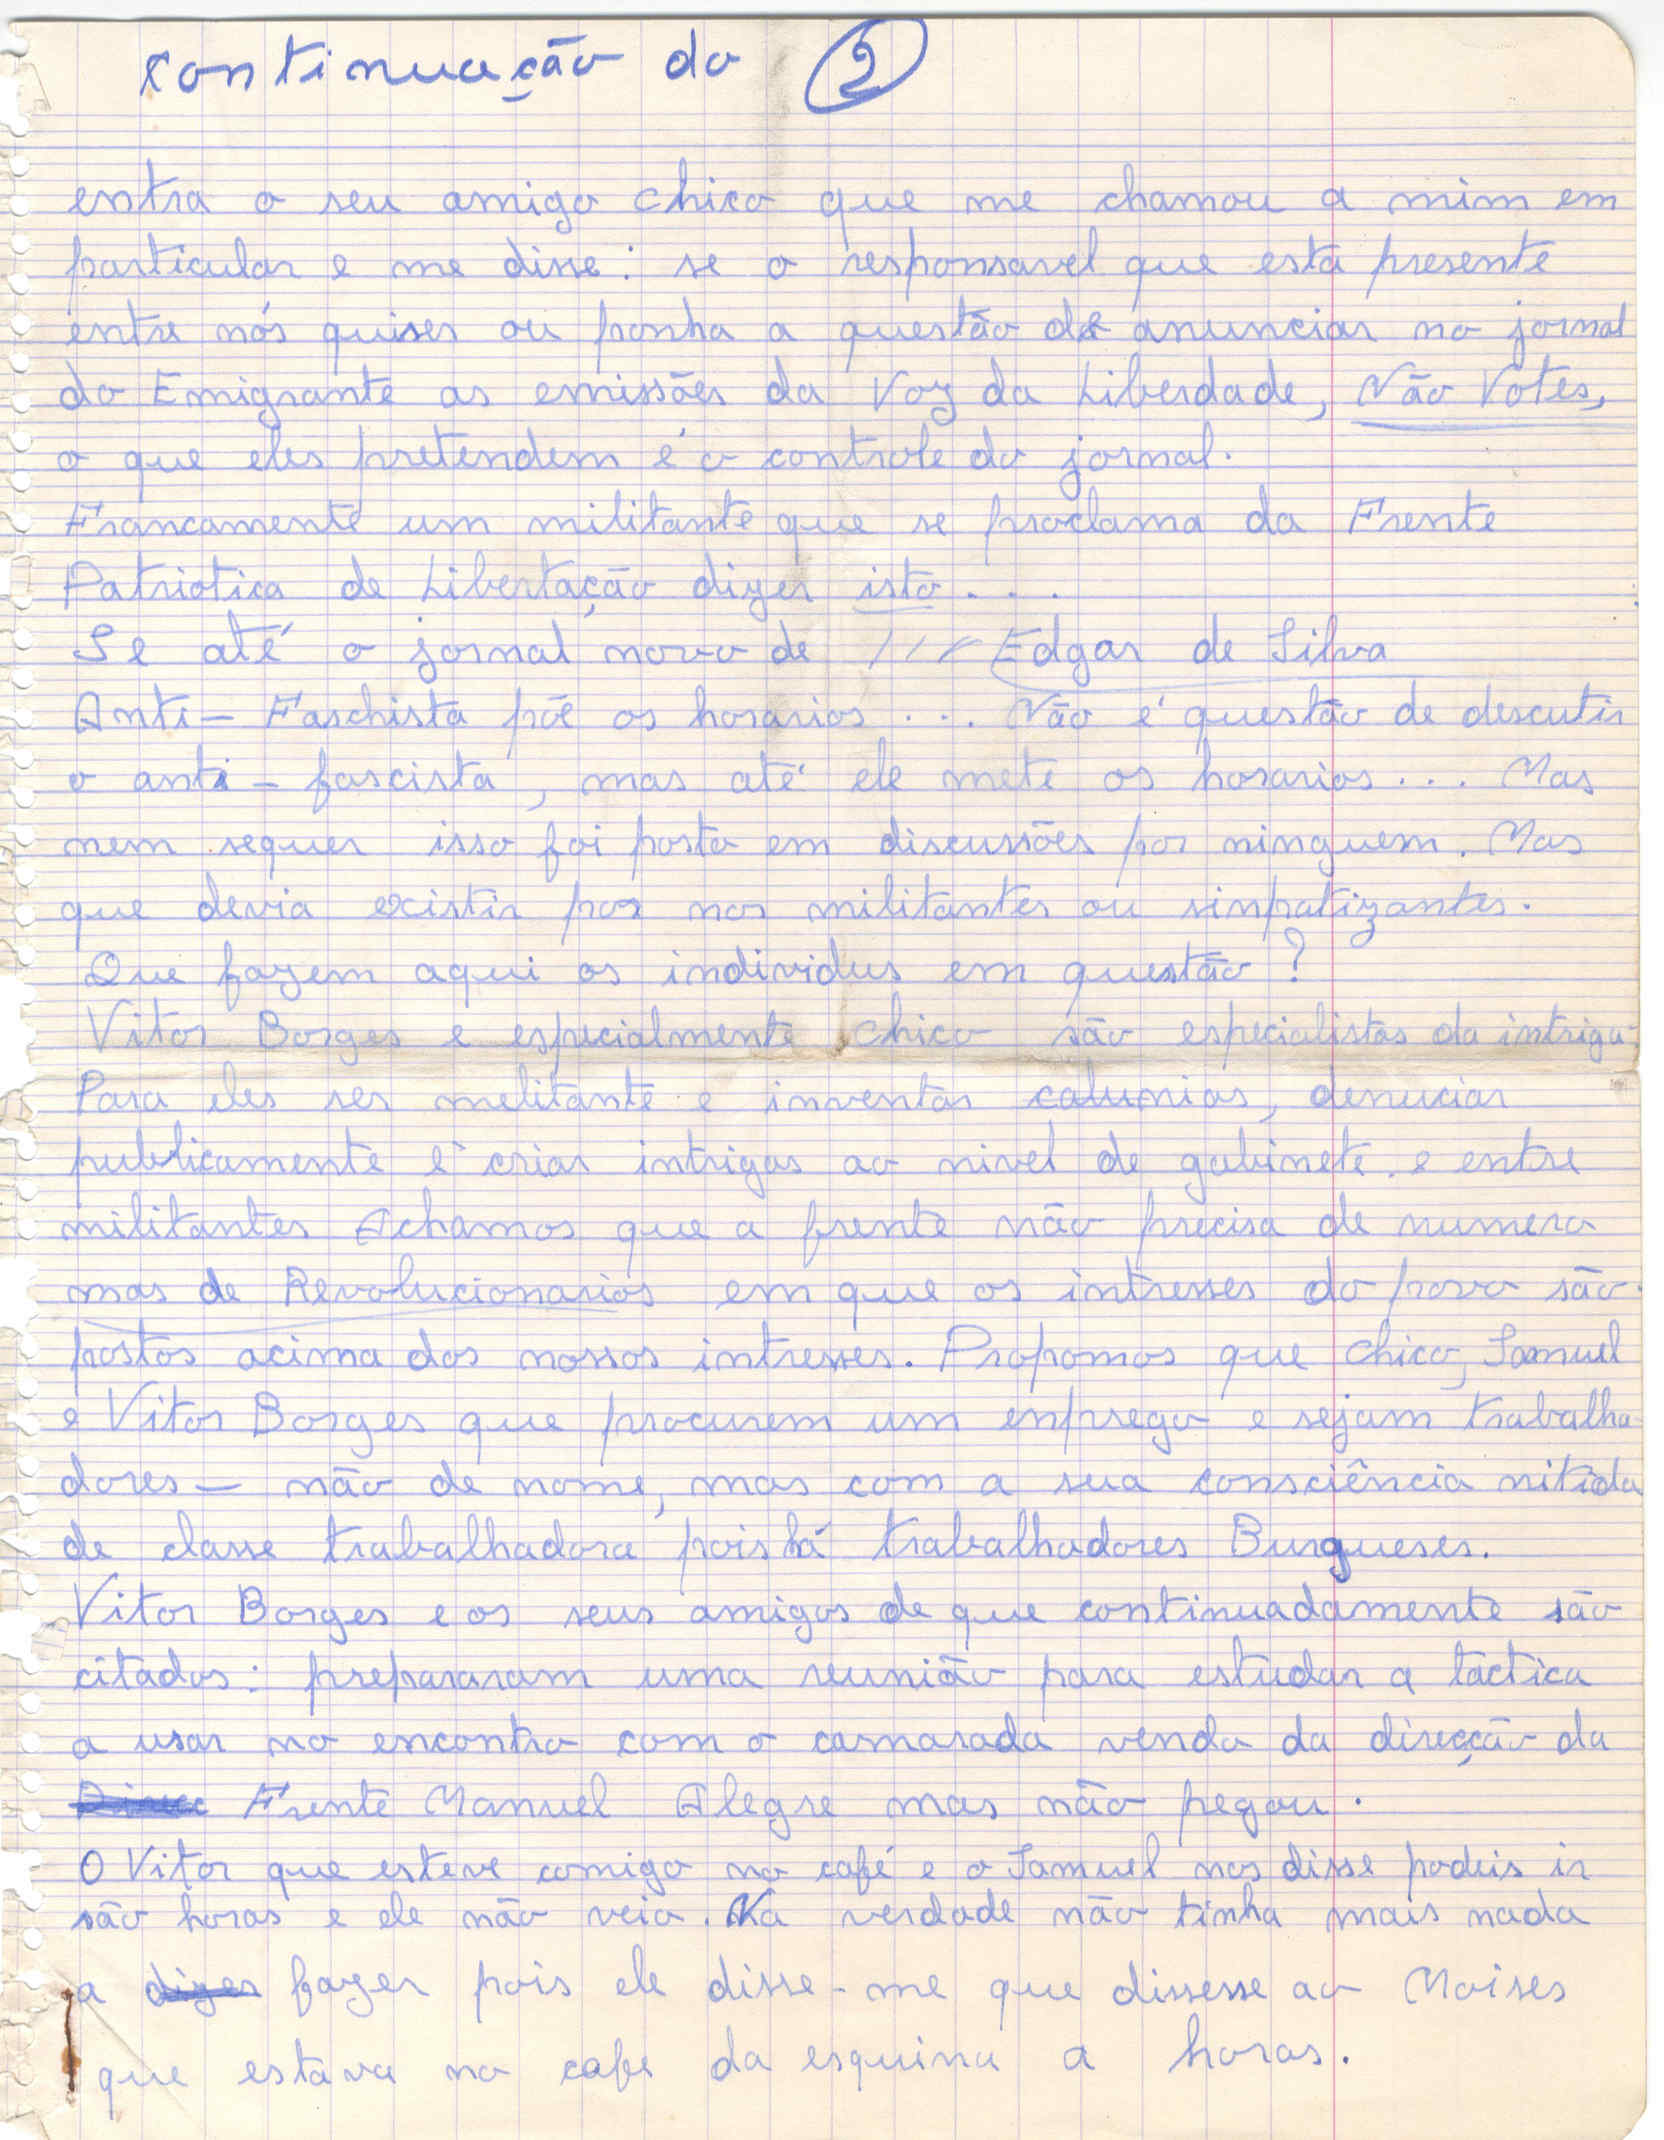 continuação do 2
entra o seu amigo chico que me chamou a mim em
particular e me disse: se o responsavel que esta presente
entre nós quiser ou ponha a questão de anunciar no jornal
do Emigrante as emissões da Voz da Liberdade, Não Votes,
o que eles pretendem é o controle do jornal.
Francamente um militante que se proclama da Frente
Patriotica de Libertação dizer isto...
Se até o jornal novo de /// Edgar de Silva
Anti-Faschista põe os horarios.... Não é questão de descutir
o anti-fascista, mas até ele mete os horarios... Mas
nem sequer isso foi posto em discussões por ninguem. Mas
que devia existir por nos militantes ou sinpatizantes.
Que fazem aqui os individus em questão?
Vitor Borges e especialmente Chico são especialistas da intriga.
Para eles ser melitante e inventar calumias, denuciar
publicamente é criar intrigas ao nivel de gabinete e entre
militantes Achamos que a frente não precisa de numero
mas de Revolucionarios em que os intresses do povo são
postos acima dos nossos intresses. Propomos que chico, Samuel
e Vitor Borges que procurem um enprego e sejam trabalha-
dores - não de nome, mas com a sua consciência nitida
de classe trabalhadora pois há trabalhadores Burgueses.
Vitor Borges e os seus amigos de que continuadamente são
citados: prepararam uma reunião para estudar a tactica
a usar no encontro com o camarada vendo da direcção da
Frente Manuel Alegre mas não pegou.
O Vitor que esteve comigo no café e o Samuel nos disse podeis ir
são horas e ele não veio. Na verdade não tinha mais nada
a dizer fazer pois ele disse-me que dissesse ao Moises
que estava no cafe da esquina a horas.